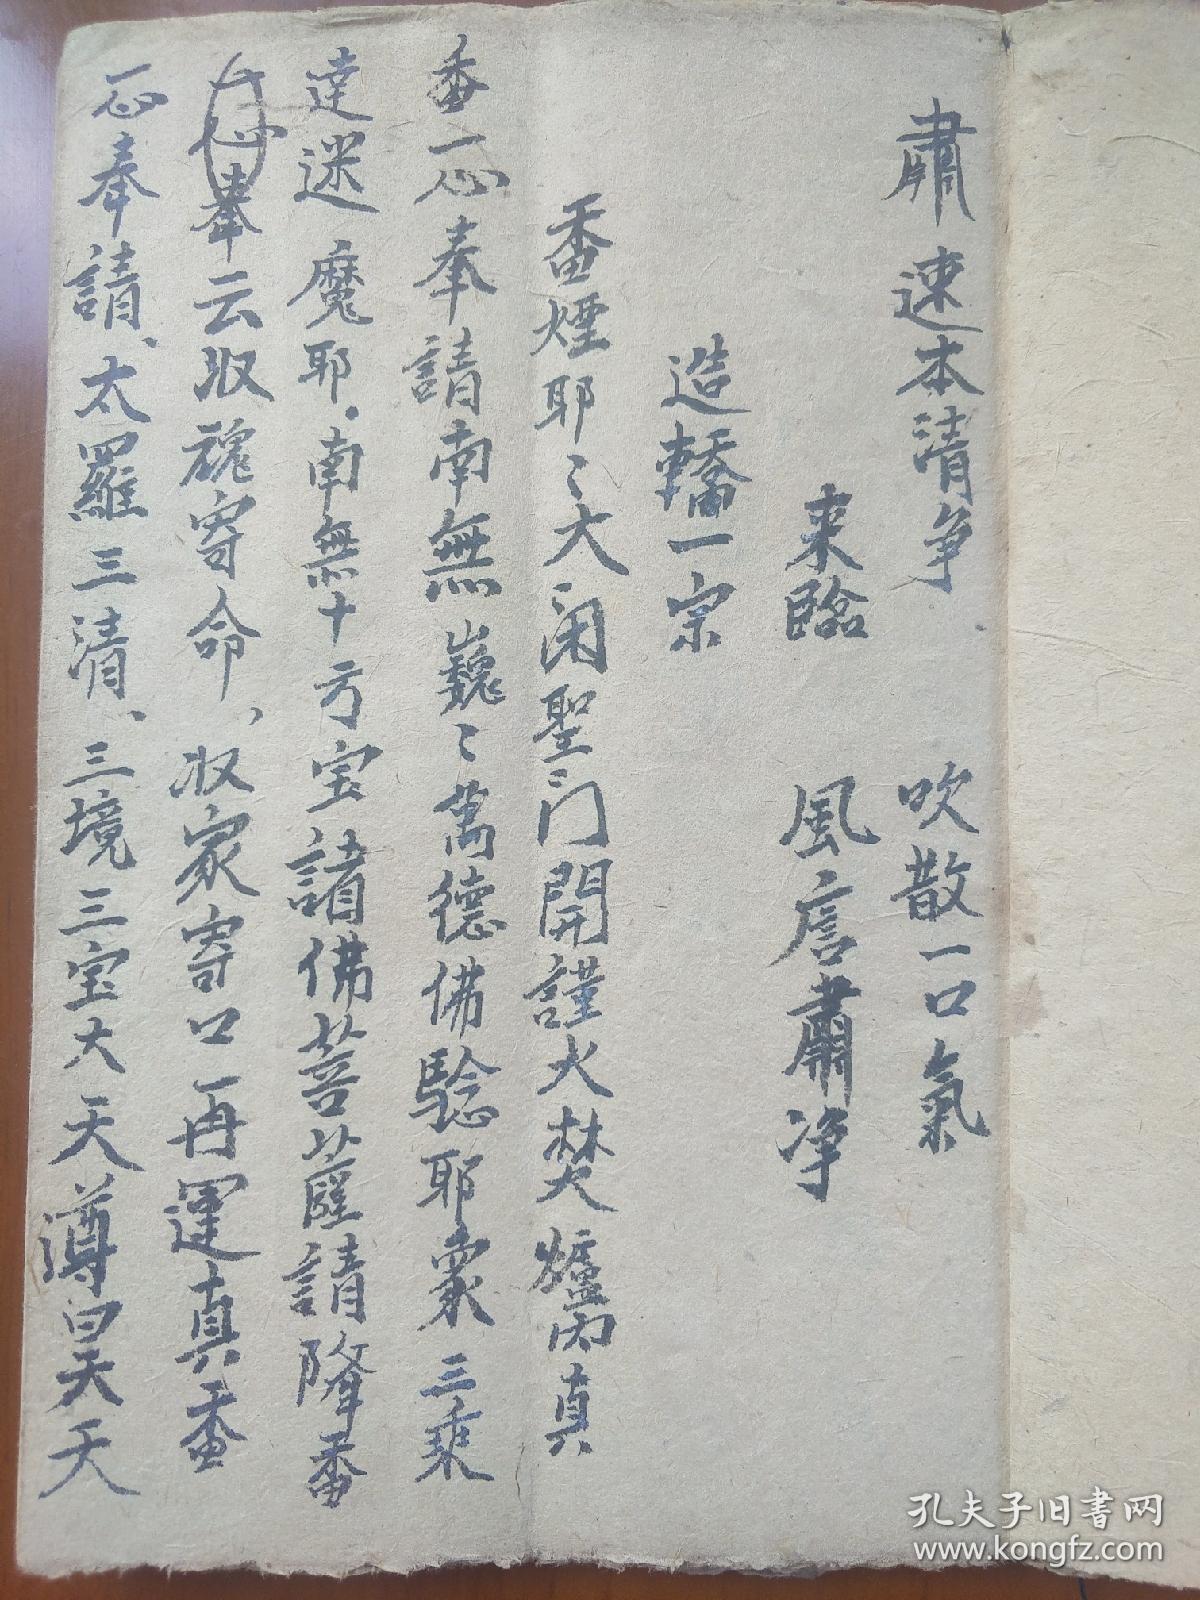 肅速本清争 吹散一口氣
来臨 風唐肅净
造轎一宗
畨煙耶〻大闲聖門開謹火焚爐内真
畨一心奉請南無巍〻萬德佛騐耶衆三乘
逹迷魔耶南無十方宝諸佛菩薩請降畨
心奉云収魂寄命、収家寄口一再運真畨
一心奉請、太羅三清、三境三宝大天尊曰昊天
孔夫子旧书网
www.kongfz.com